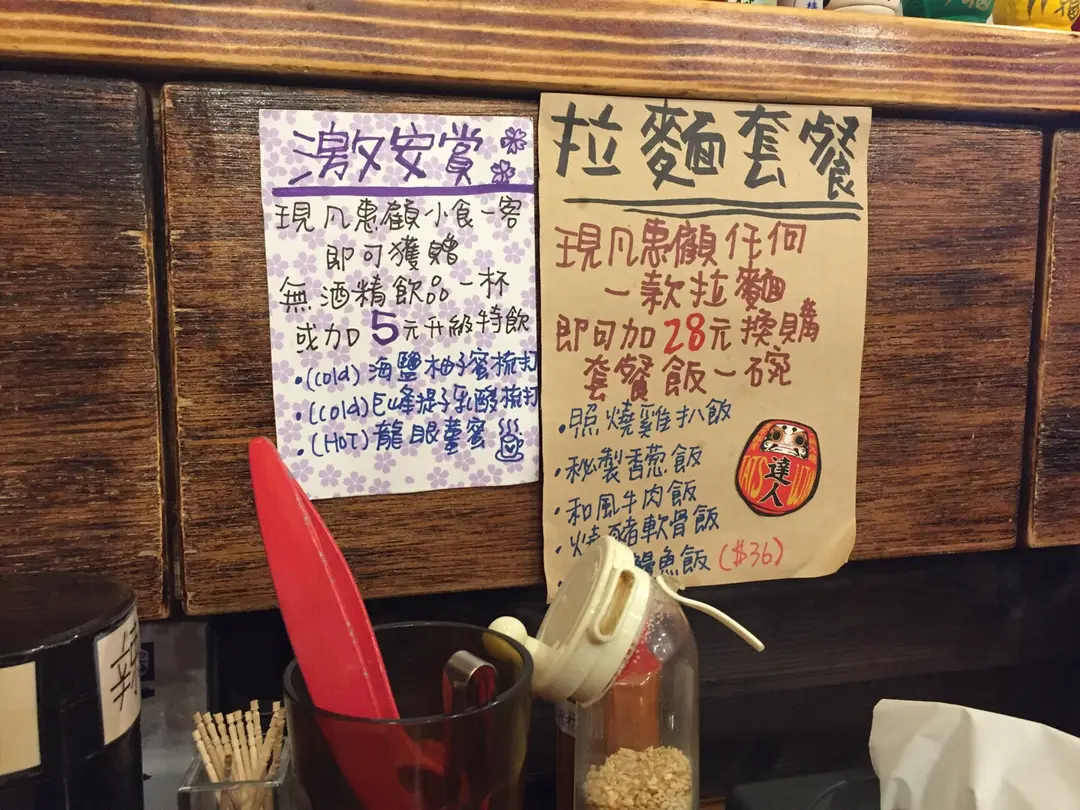 激安賞
現凡惠顧小食一客
即可獲贈
無酒精飲品一杯
或加5元升級特飲
•(Cold)海鹽柚子蜜梳打
•(Cold)巨峰提子乳酸梳打
•(HOT)龍眼薑蜜
拉麵套餐
現凡惠顧任何
一款拉麵
即可加28元換購
套餐飯一碗
•照燒雞扒飯
•秘製香蔥飯
•和風牛肉飯
•燒豬軟骨飯
鰻魚飯($36)
達人
辣